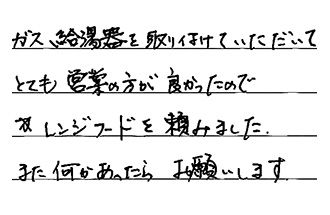 ガス給湯器を取り付けていただいて
とても営業の方が良かったので
レンジフードを頼みました.
また何かあったら お願いします.